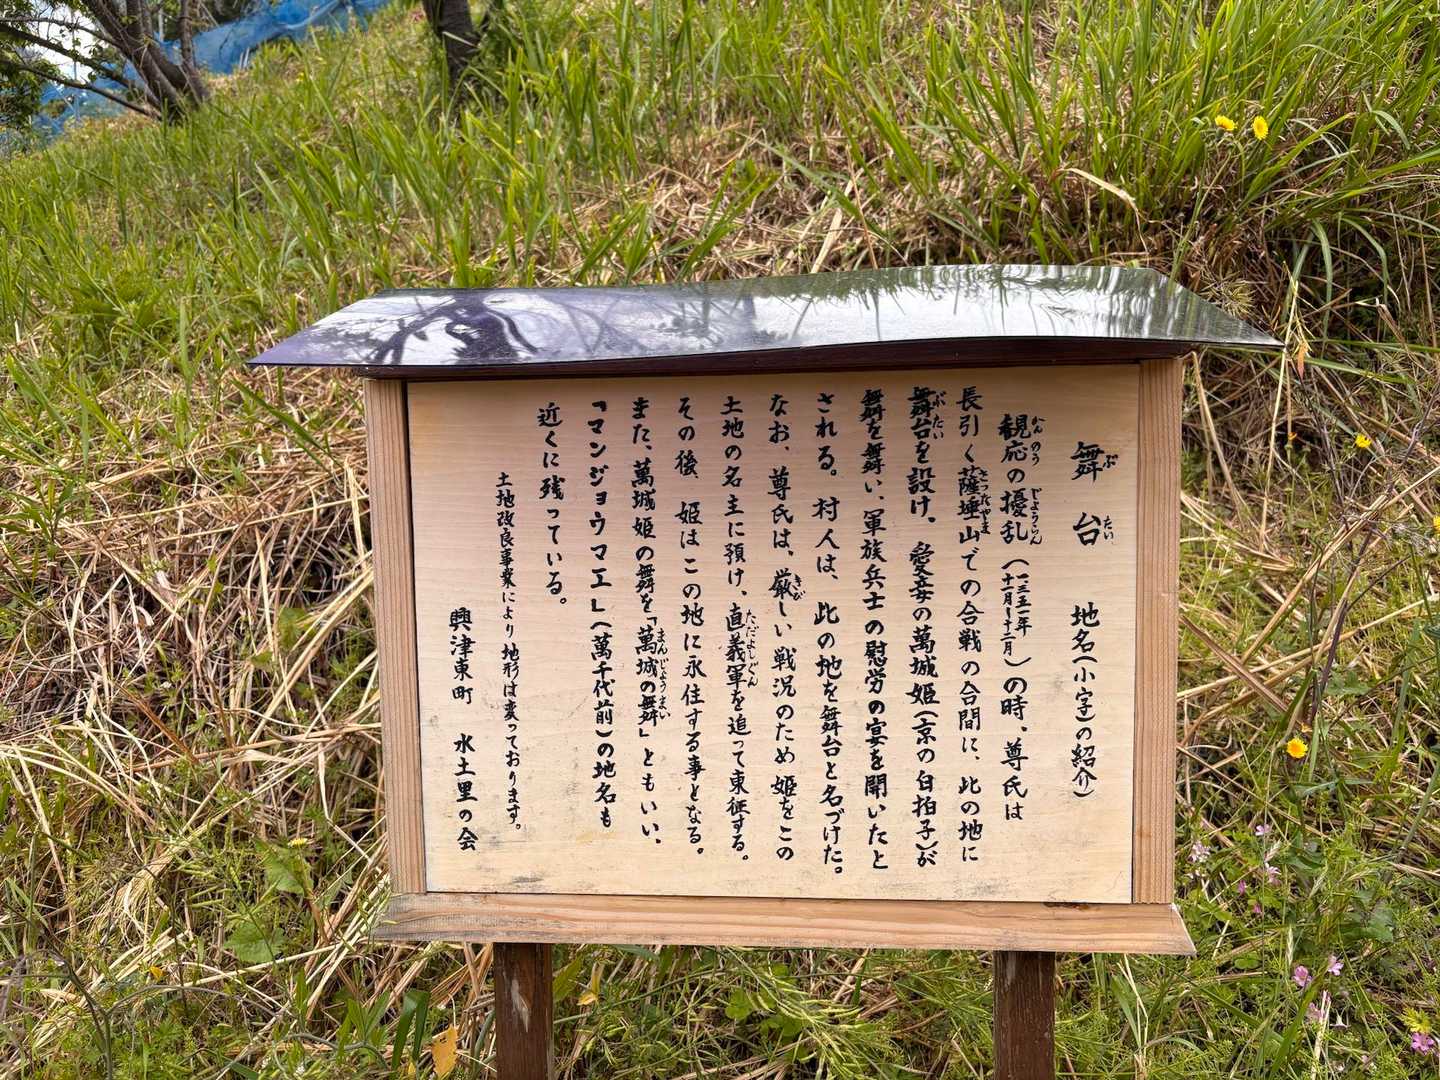 舞台 地名(小字)の紹介
観応の擾乱(一三五一年十一月〜十二月)の時、尊氏は
長引く薩埵山での合戦の合間に、此の地に
舞台を設け、愛妾の萬城姫(京の白拍子)が
舞を舞い、軍族兵士の慰労の宴を開いたと
される。村人は、此の地を舞台と名づけた。
なお、尊氏は、厳しい戦況のため姫をこの
土地の名主に預け、直義軍を追って東征する。
その後、姫はこの地に永住する事となる。
また、萬城姫の舞を「萬城の舞」ともいい、
「マンジョウマエ」(萬千代前)の地名も
近くに残っている。
土地改良事業により地形は変っております。
興津東町 水土里の会